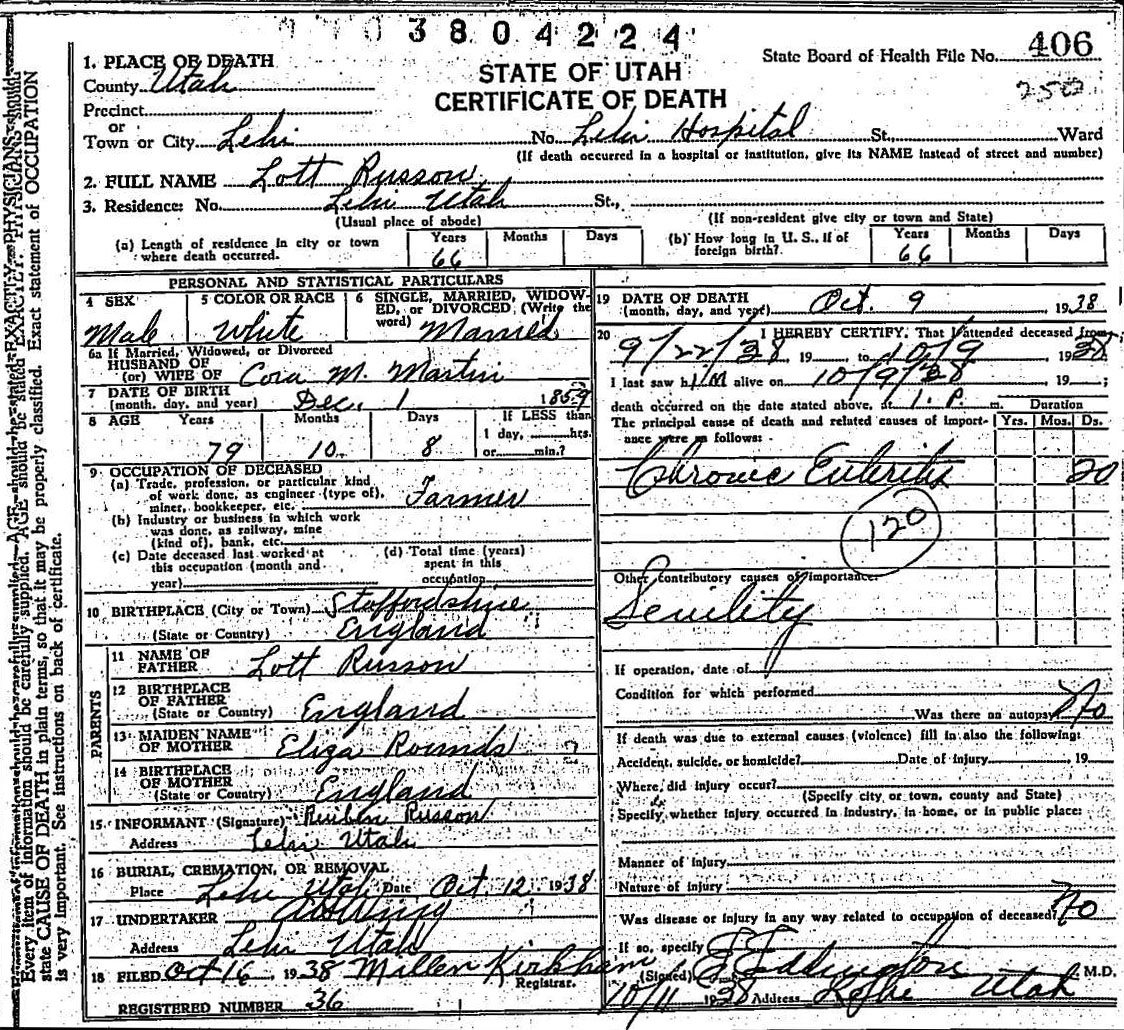 3804224
State Board of Health File No. 406
250
STATE OF UTAH
CERTIFICATE OF DEATH
1. PLACE OF DEATH
County Utah
Precinct
or
Town or City Lehi No. Lehi Hospital St. Ward
(If death occurred in a hospital or institution, give its NAME instead of street and number)
2. FULL NAME Lott Russon
3. Residence: No. Lehi Utah St.,
(Usual place of abode) (If non-resident give city or town and State)
(a) Length of residence in city or town where death occurred. Years 66 Months Days
(b) How long in U. S., if of foreign birth? Years 66 Months Days
PERSONAL AND STATISTICAL PARTICULARS
4 SEX Male
5 COLOR OR RACE White
6 SINGLE, MARRIED, WIDOWED, OR DIVORCED (Write the word) Married
6a If Married, Widowed, or Divorced
HUSBAND OF
(or) WIFE OF Cora M. Martin
7 DATE OF BIRTH
(month, day, and year) Dec. 1 1859
8 AGE Years 79 Months 10 Days 8 If LESS than 1 day, hrs. or min.?
9 OCCUPATION OF DECEASED
(a) Trade, profession, or particular kind
of work done, as engineer (type of),
miner, bookkeeper, etc. Farmer
(b) Industry or business in which work
was done, as railway, mine
(kind of), bank, etc.
(c) Date deceased last worked at
this occupation (month and
year)
(d) Total time (years)
spent in this
occupation
10 BIRTHPLACE (City or Town) Staffordshire
(State or Country) England
PARENTS
11 NAME OF
FATHER Lott Russon
12 BIRTHPLACE
OF FATHER
(State or Country) England
13 MAIDEN NAME
OF MOTHER Eliza Rounds ?
14 BIRTHPLACE
OF MOTHER
(State or Country) England
15 INFORMANT (Signature) Reuben Russon
Address Lehi Utah
16 BURIAL, CREMATION, OR REMOVAL
Place Lehi Utah Date Oct 12 1938
17 UNDERTAKER
Address Lehi Utah
18 FILED Oct 16, 1938 Millen Kirkham
Registrar.
REGISTERED NUMBER 36
19 DATE OF DEATH
(month, day, and year) Oct. 9 1938
20 I HEREBY CERTIFY, That I attended deceased from
9/22/38, 19 to 10/9 1938
I last saw him alive on 10/9/38 19 ;
death occurred on the date stated above, at 1. P. m. Duration
The principal cause of death and related causes of importance were as follows: Yrs. Mos. Ds.
Chronic Enteritis 20
120
Other contributory causes of importance:
Senility
If operation, date of
Condition for which performed
Was there an autopsy No
If death was due to external causes (violence) fill in also the following:
Accident, suicide, or homicide? Date of injury 19
Where did injury occur?
(Specify city or town, county and State)
Specify whether injury occurred in industry, in home, or in public place:
Manner of injury
Nature of injury
Was disease or injury in any way related to occupation of deceased? No
If so, specify
(Signed) Eddington M.D.
10/11 1938 Address Utah
Every item of information should be carefully supplied. AGE should be stated EXACTLY. PHYSICIANS should
state CAUSE OF DEATH in plain terms, so that it may be properly classified. Exact statement of OCCUPATION
is very important. See instructions on back of certificate.